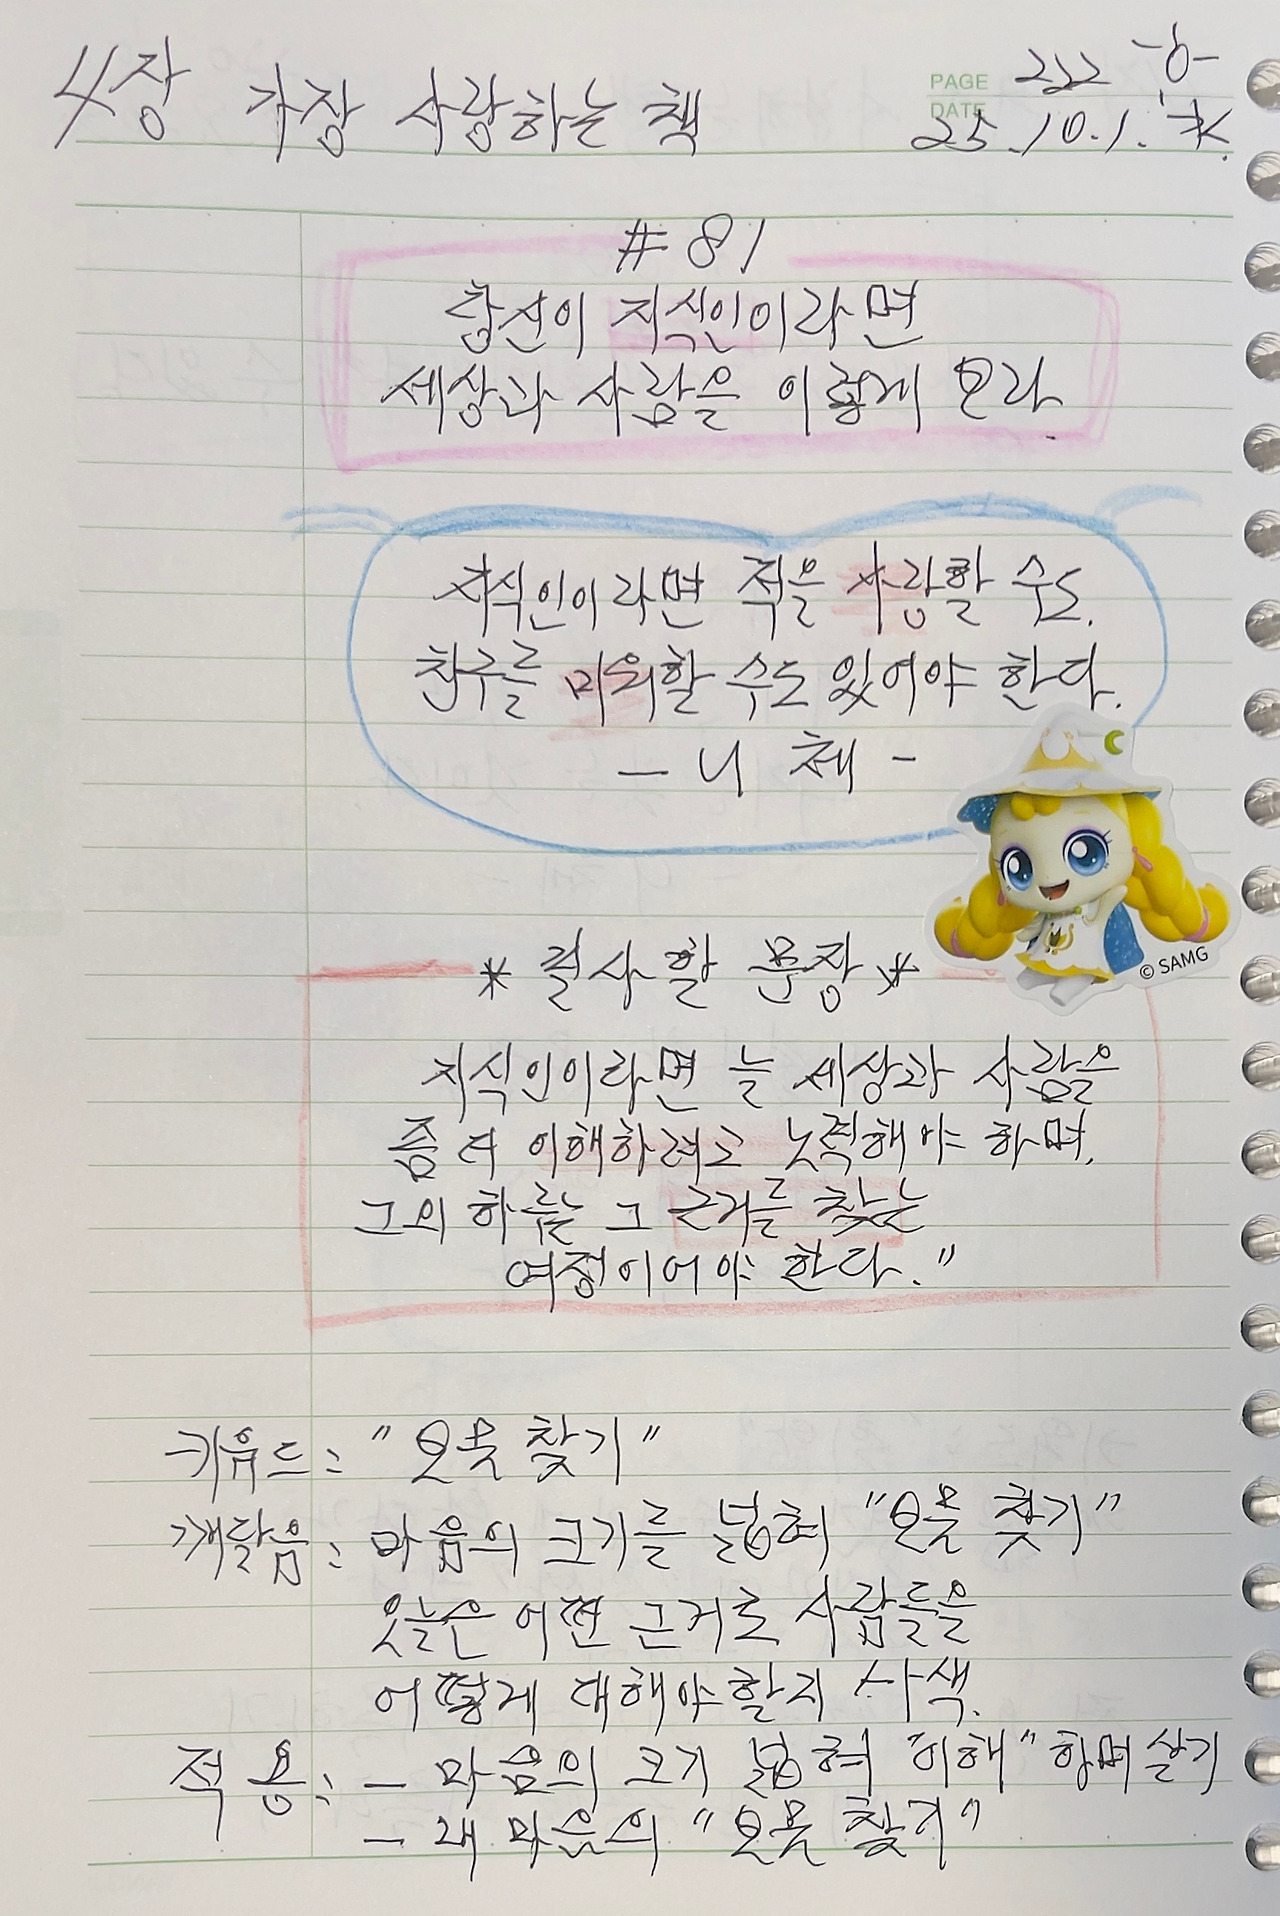 4장 가장 사랑하는 책
PAGE 222 쪽
DATE 25.10.1.水.
#81
당신이 지식인이라면
세상과 사람을 이렇게 보라.
지식인이라면 적을 사랑할 수도.
친구를 미워할 수도 있어야 한다.
- 니 체 -
© SAMG
* 필사할 문장 *
지식인이라면 늘 세상과 사람을
좀 더 이해하려고 노력해야 하며.
그의 하루는 그 근거를 찾는
여정이어야 한다."
키워드: "오못 찾기"
깨달음: 마음의 크기를 넓혀 "오못 찾기"
오늘은 어떤 근거로 사람들을
어떻게 대해야할지 사색.
적 용: - 마음의 크기 넓혀 "이해"하며 살기
- 내 마음의 "오못 찾기"